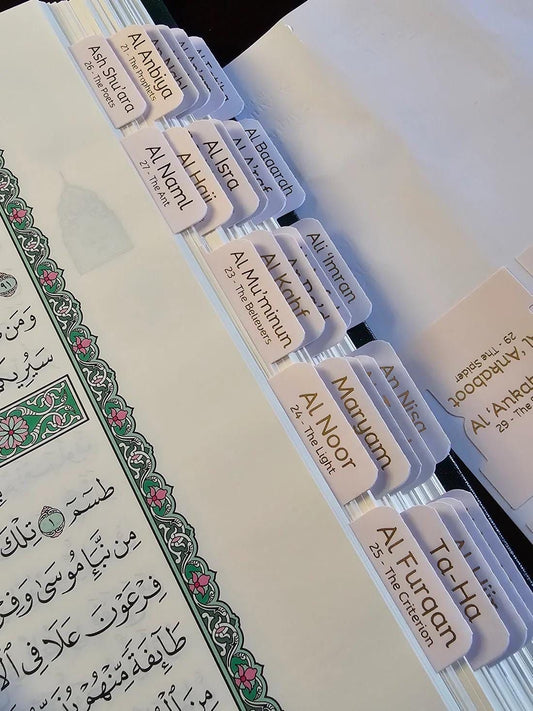 Ash Shu'ara
26 - The Poets
Al Anbiya
21 - The Prophets
Al Naml
27 - The Ant
Al Hajj
Al Isra
Al Baqarah
Al Mu'minun
23 - The Believers
Al Kahf
Ali 'Imran
Al Noor
24 - The Light
Maryam
An Nisa
Al Furqan
25 - The Criterion
Ta-Ha
Al 'Ankaboot
29 - The Spider
Al 'Ankab
29 - The
وَمَن
طسٓمٓ ١ تِلْكَ
مِن نَّبَإِ مُوسَىٰ
فِرْعَوْنَ عَلَا فِي
طَآئِفَةً مِّنْهُمْ
مِنَ